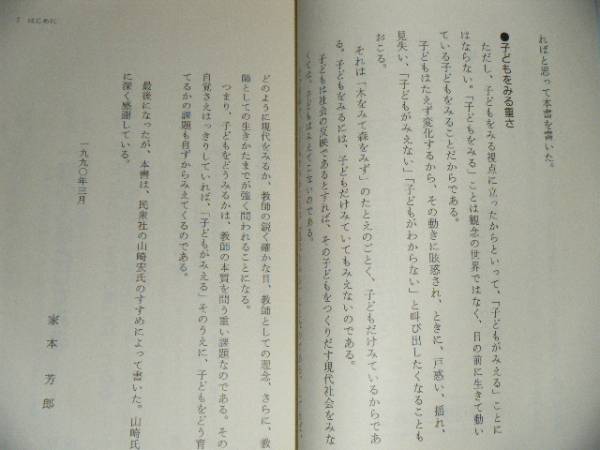 ればと思って本書を書いた。
●子どもをみる重さ
ただし、子どもをみる視点に立ったからといって、「子どもがみえる」ことに
はならない。「子どもをみる」ことは観念の世界ではなく、目の前に生きて動い
ている子どもをみることだからである。
子どもはたえず変化するから、その動きに眩惑され、ときに、戸惑い、揺れ、
見失い、「子どもがみえない」「子どもがわからない」と叫び出したくなることも
おこる。
それは「木をみて森をみず」のたとえのごとく、子どもだけみているからであ
る。子どもをみるには、子どもだけみていてもみえないのである。
子どもは社会の反映であるとすれば、その子どもをつくりだす現代社会をみな
くては、子どもはみえてこないのである。
7 はじめに
どのように現代をみるか、教師の鋭く確かな目、教師としての理念、さらに、教
師としての生きかたまでが強く問われることになる。
つまり、子どもをどうみるかは、教師の本質を問う重い課題なのである。その
自覚さえはっきりしていれば、「子どもがみえる」そのうえに、子どもをどう育
てるかの課題も自ずからみえてくるのである。
最後になったが、本書は、民衆社の山崎宏氏のすすめによって書いた。山崎氏
に深く感謝している。
一九九〇年三月
家本芳郎